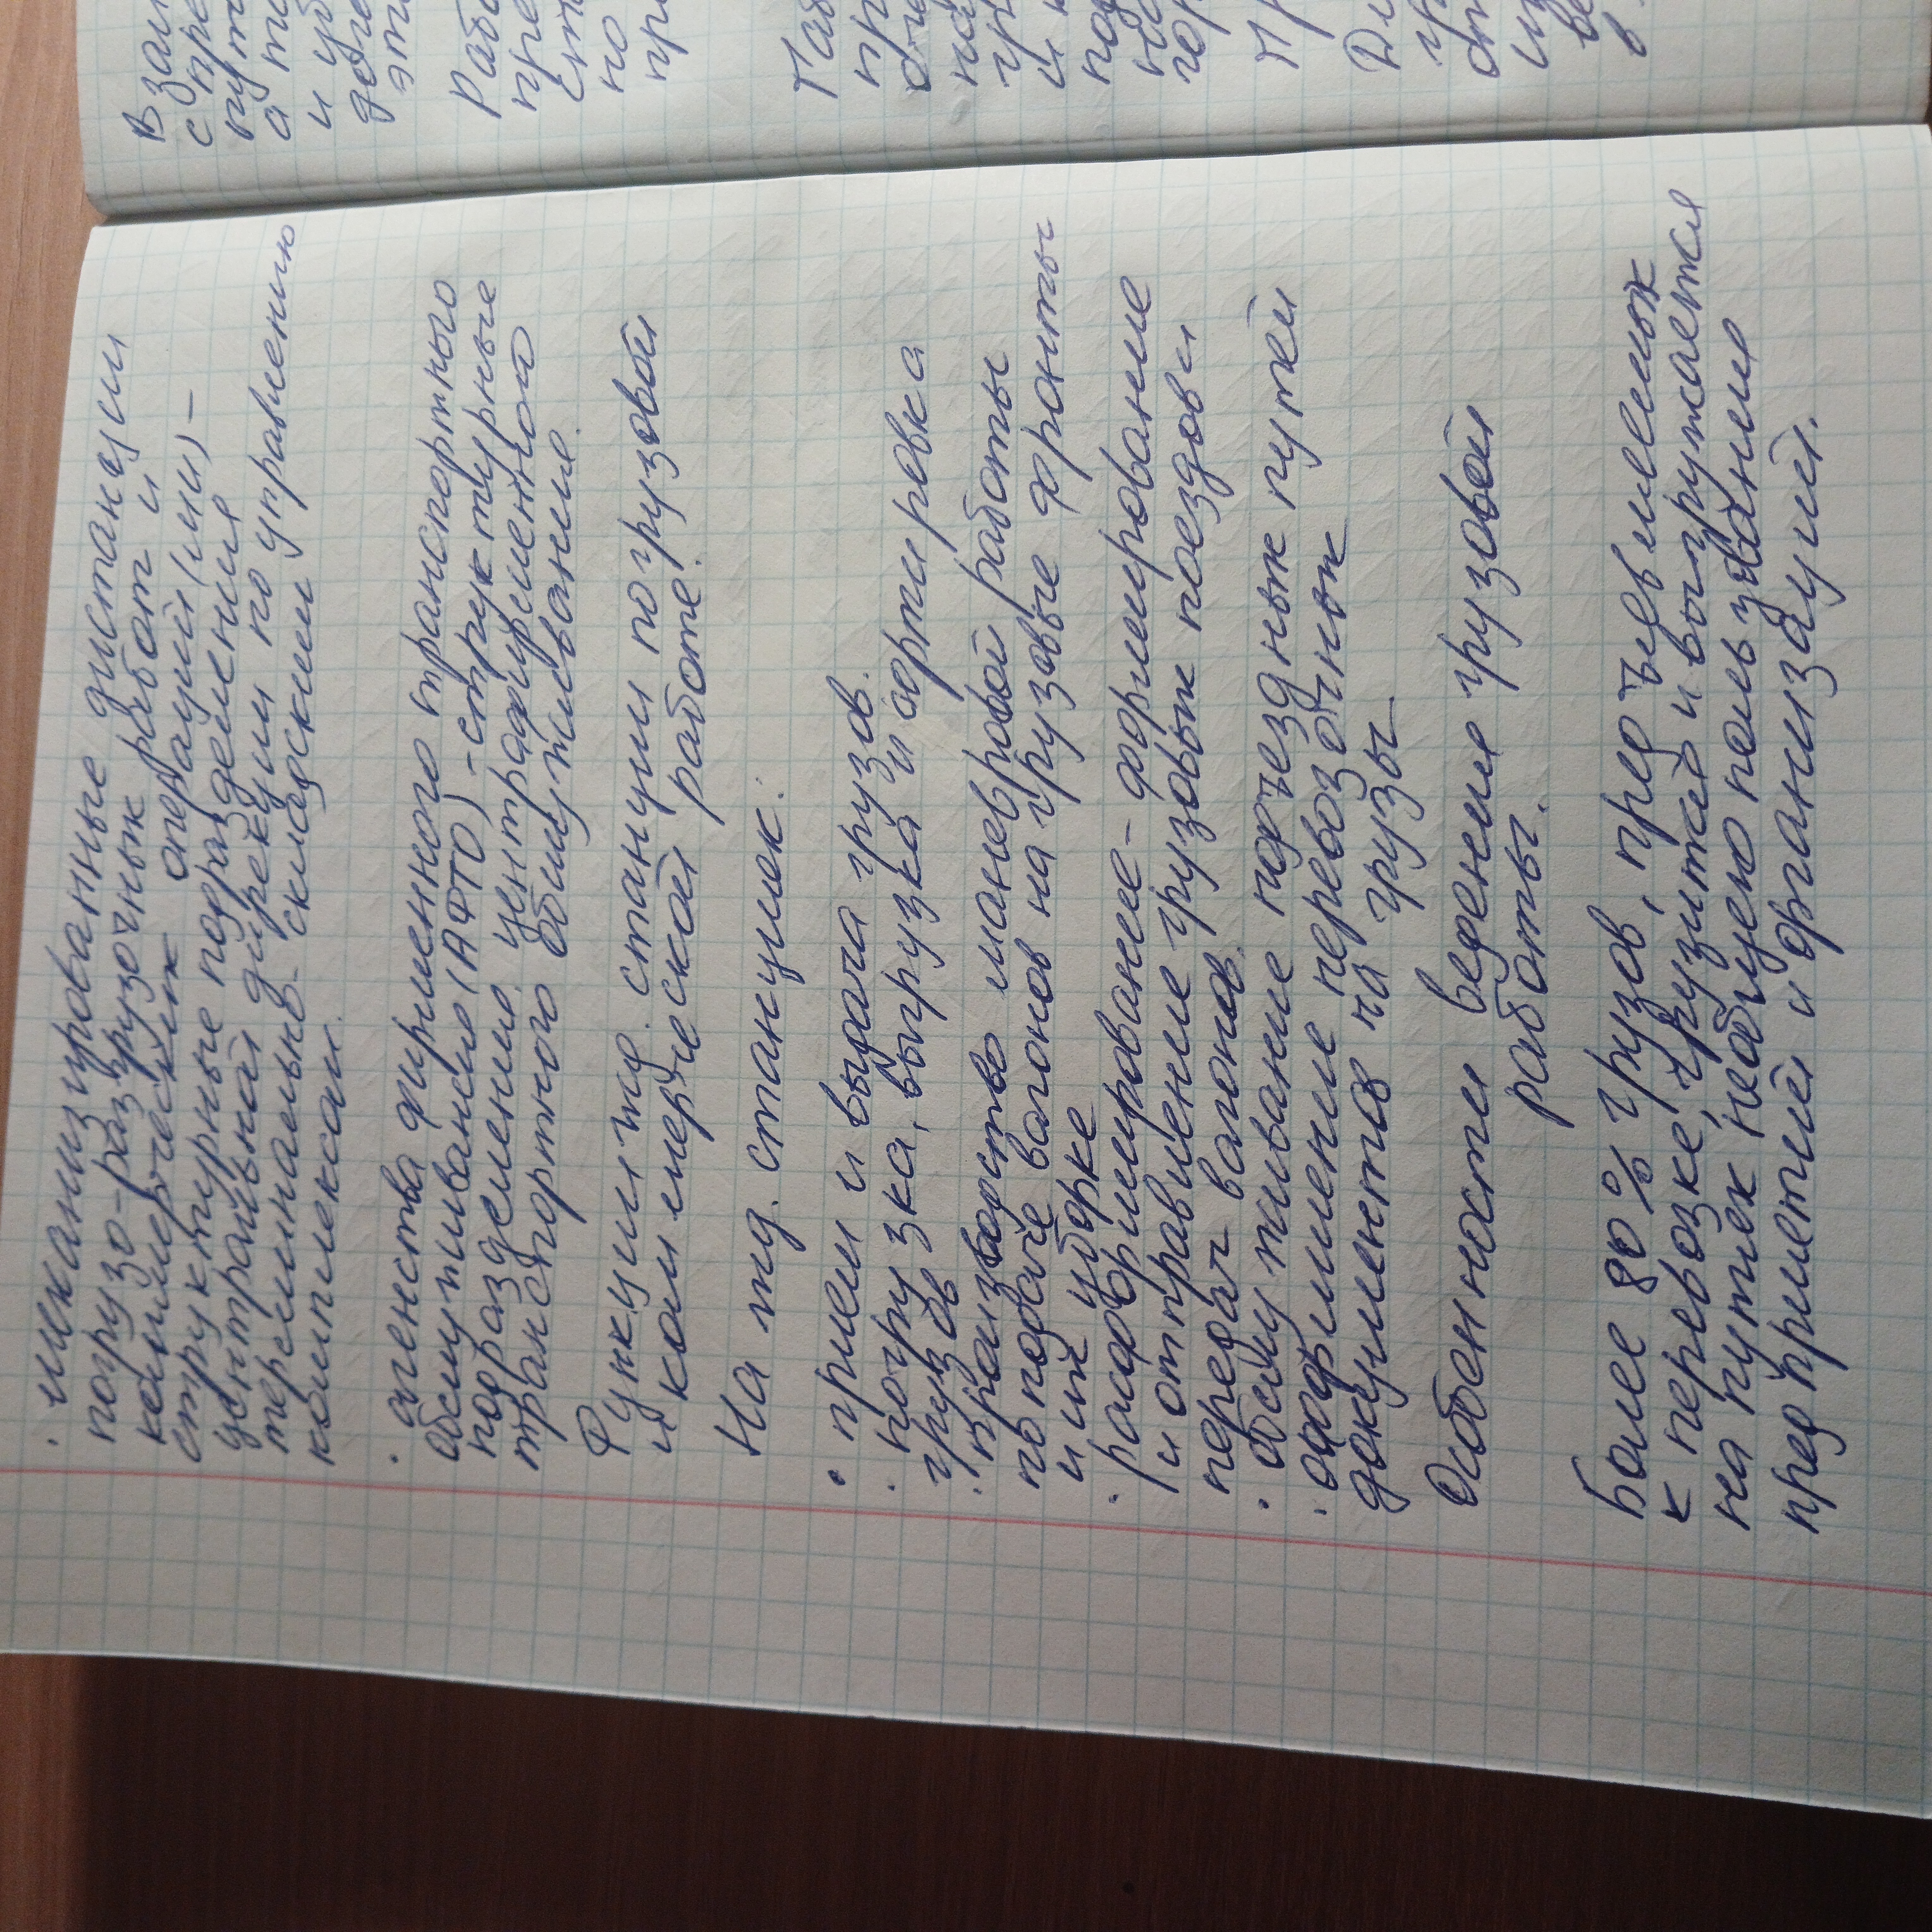 · механизированные дистанции
погрузо-разгрузочных работ и
коммерческих операций (мч) –
структурные подразделения
центральной дирекции по управлению
терминально- складским
комплексом.
· агенства фирменного транспортного
обслуживания (АФТО) -структурные
подразделения центрафирменного
транспортного обслуживания.
Функции жд. станции по грузовой
и коммерческой работе.
На жд. станциях:
· прием и выдача грузов.
· погрузка, выгрузка и сортировка
грузов
· производство маневровой работы
по подаче вагонов на грузовые фронты
и их уборке
· расформирование- формирование
и отправление грузовых поездов и
передач вагонов.
· обслуживание подъездных путей
· оформление перевозочных
документов на грузы
Особенности ведения грузовой
работы.
Более 80% грузов, предъявленных
к перевозке, грузится и выгружается
на путях необщего пользования
предприятий и организаций.